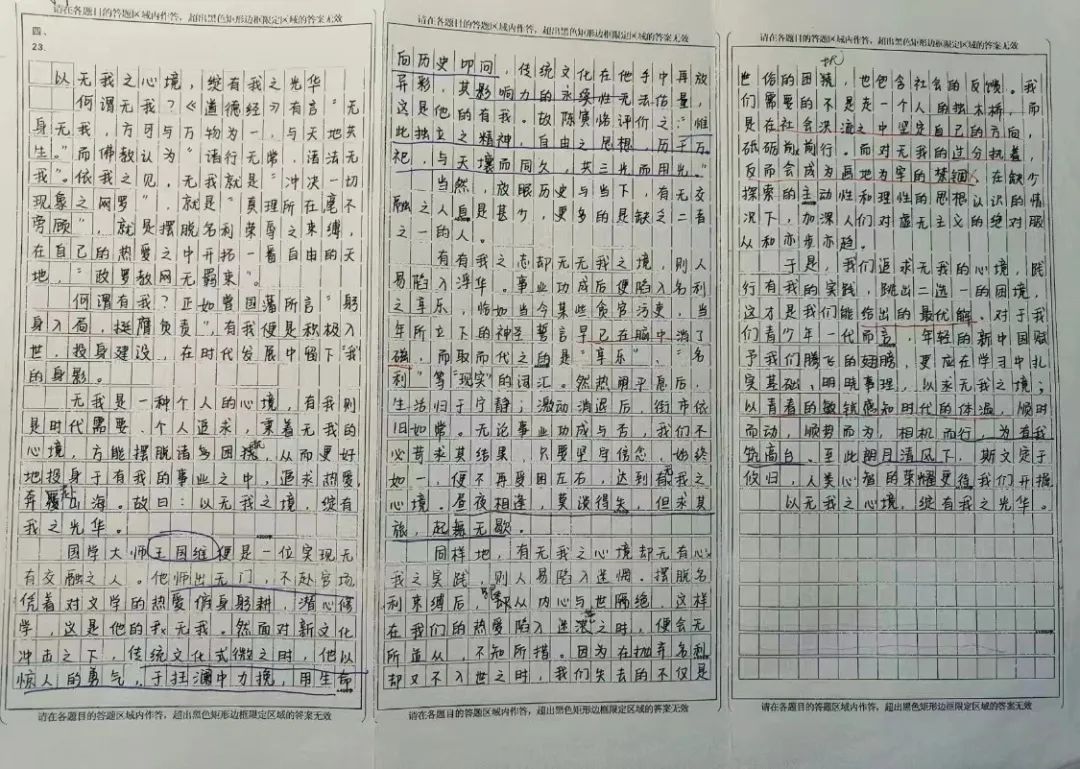 请在各题目的答题区域内作答，超出黑色矩形边框限定区域的答案无效
四、
23.
以无我之心境，绽有我之光华
何谓无我？《道德经》有言“无
身无我，方可与万物为一，与天地共
生。”而佛教认为“诸行无常，诸法无
我”。依我之见，无我就是“冲决一切
现象之网罗”，就是“真理所在毫不
旁顾”，就是摆脱名利荣辱之束缚，
在自己的热爱之中开拓一番自由的天
地，“政罗教网无羁束”。
何谓有我？正如曾国藩所言“躬
身入局，挺膺负责”，有我便是积极入
世，投身建设，在时代发展中留下“我”
的身影。
无我是一种个人的心境，有我则
是时代需要、个人追求，秉着无我的
心境，方能摆脱诸多困扰，从而更好
地投身于有我的事业之中，追求热爱，
奔赴山海。故曰：以无我之境，绽有
我之光华。
国学大师王国维便是一位实现无
有交融之人。他师出无门，不赴官场，
凭着对文学的热爱俯身躬耕，潜心修
学，这是他的无我。然面对新文化
冲击之下，传统文化式微之时，他以
惊人的勇气，于狂澜中力挽，用生命
请在各题目的答题区域内作答，超出黑色矩形边框限定区域的答案无效
请在各题目的答题区域内作答，超出黑色矩形边框限定区域的答案无效
向历史叩问，传统文化在他手中再放
异彩，其影响力的永续性无法估量，
这是他的有我。故陈寅恪评价之：“惟
此独立之精神，自由之思想，历千万
祀，与天壤而同久，共三光而用光。”
当然，放眼历史与当下，有无交
融之人自是甚少，更多的是缺之二者
之一的人。
有有我之志却无无我之境，则人
易陷入浮华。事业功成后便陷入名利
之享乐，恰如当今某些贪官污吏，当
年所立下的神圣誓言早已在脑中消了
磁，而取而代之的是“享乐”、“名
利”等“现实”的词汇。然热闹平息后，
生活归于宁静；激动消退后，街市依
旧如常。无论事业功成与否，我们不
必苛求其结果，只要坚守信念，始终
如一，便不再受困左右，达到无我之
心境。昼夜相逢，莫谈得失，但求其
旅，起舞无歇。
同样地，有无我之心境却无有
我之实践，则人易陷入迷惘。摆脱名
利束缚后，却从内心与世隔绝，这样
在我们的热爱陷入迷惑之时，便会无
所适从，不知所措。因为在抛弃名利
却又不入世之时，我们失去的不仅是
请在各题目的答题区域内作答，超出黑色矩形边框限定区域的答案无效
请在各题目的答题区域内作答，超出黑色矩形边框限定区域的答案无效
世俗的困扰，也包含社会的反馈。我
们需要的不是走一个人的独木桥，而
是在社会洪流之中坚定自己的方向，
砥砺前行。而对无我的过分执着，
反而会成为画地为牢的禁锢，在缺少
探索的主动性和理性的思想认识的情
况下，加深人们对虚无主义的绝对服
从和亦步亦趋。
于是，我们追求无我的心境，践
行有我的实践，跳出二选一的困境，
这才是我们能给出的最优解。对于我
们青少年一代而言，年轻的新中国赋
予我们腾飞的翅膀，更应在学习中扎
实基础、明晓事理，以求无我之境；
以青春的敏锐感知时代的体温，顺时
而动，顺势而为，相机而行，为有我
筑高台。至此朗月清风下，斯文定于
归，人类心智的荣耀要待我们开掘
以无我之心境，绽有我之光华。
请在各题目的答题区域内作答，超出黑色矩形边框限定区域的答案无效